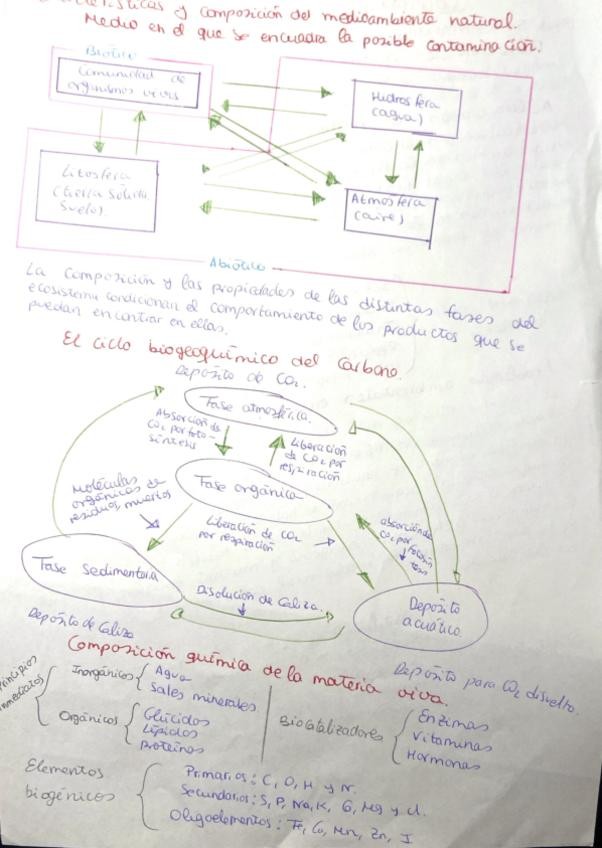 y composición del medioambiente natural.
Medio en el que se encuadra la posible contaminación.
Biótico
Comunidad de
organismos vivos
Hidrosfera
(agua)
Litosfera
(tierra sólida
suelo).
Atmosfera
(aire)
Abiótico
La composición y las propiedades de las distintas fases del
ecosistema condicionan el comportamiento de los productos que se
puedan encontrar en ellas.
El ciclo biogeoquímico del Carbono.
Depósito de CO2.
Fase atmosférica.
Absorción de
CO2 por foto-
síntesis
Liberación
de CO2 por
respiración
Fase orgánica
Moléculas
orgánicas de
residuos muertos
Liberación de CO2
por respiración
absorción de
CO2 por fotosín
tesis
Fase sedimentaria
Disolución de Caliza.
Depósito
acuático
Depósito de Caliza
Depósito para CO2 disuelto.
Composición química de la materia viva.
Principios
inmediatos
Inorgánicos
Agua
Sales minerales
Orgánicos
Glúcidos
Lípidos
Proteínas
Biocatalizadores
Enzimas
Vitaminas
Hormonas
Elementos
biogénicos
Primarios: C, O, H y N.
Secundarios: S, P, Na, K, Mg y Cl.
Oligoelementos: Fe, Co, Mn, Zn, I